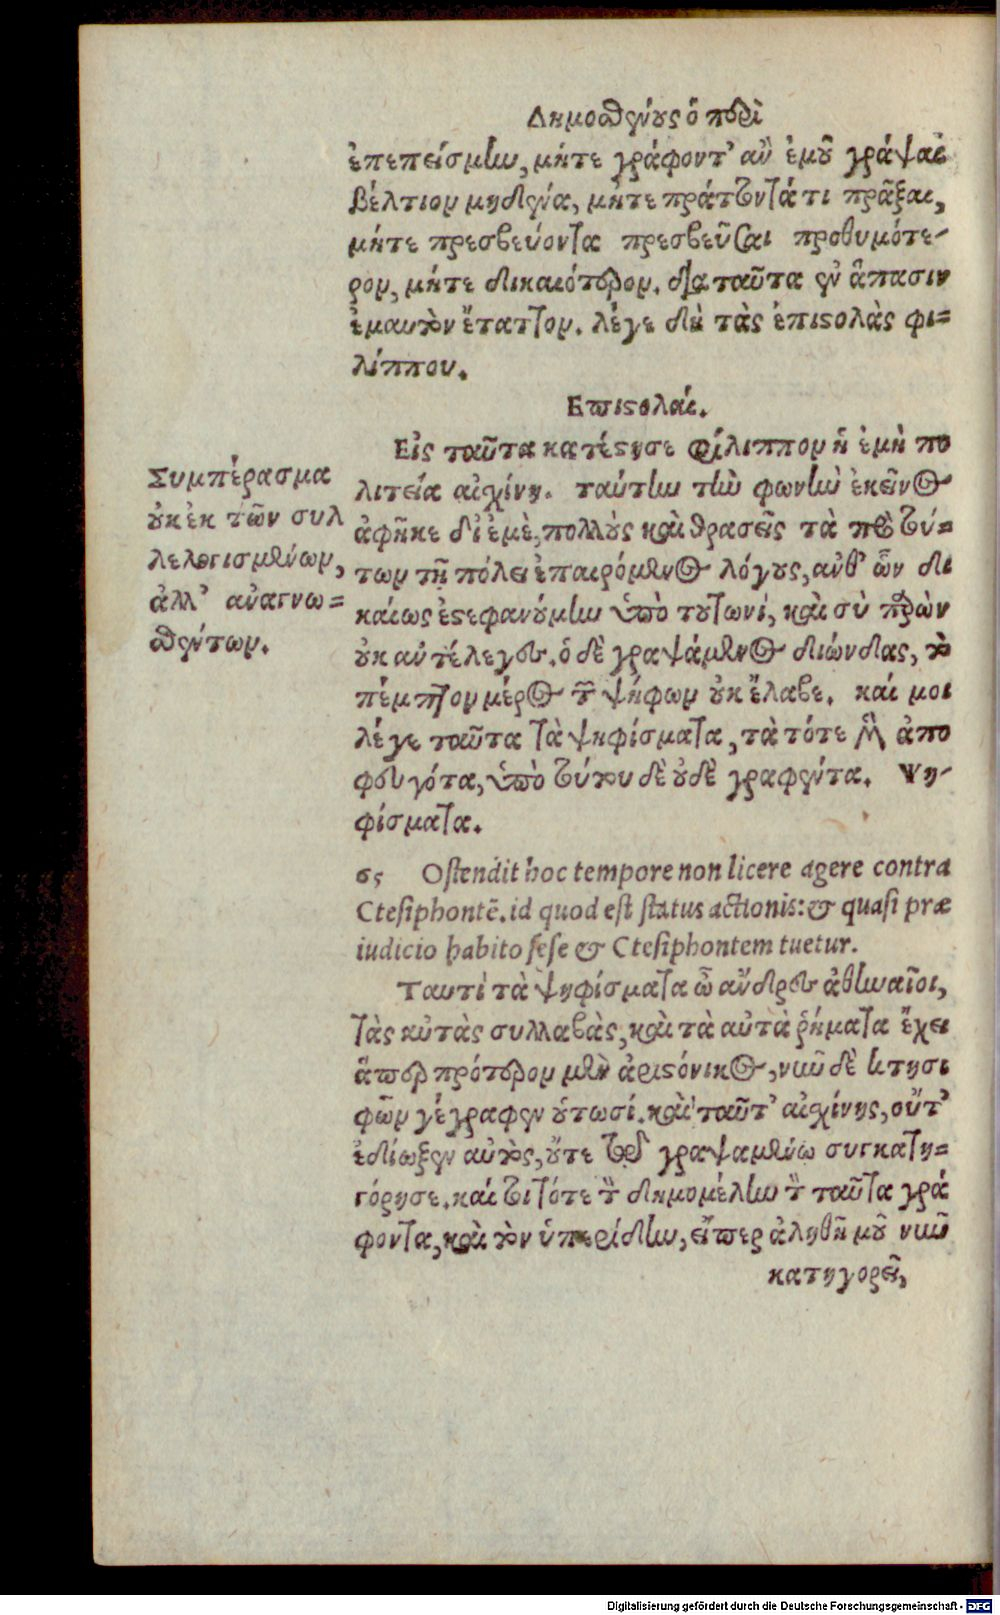 Δημοσθένους ὁ περὶ
ἐπεπείσμην, μήτε γράφοντ' ἂν ἐμοῦ γράψαι
βέλτιον μηδένα, μήτε πράττοντά τι πρᾶξαι,
μήτε πρεσβεύοντα πρεσβεῦσαι προθυμότε-
ρον, μήτε δικαιότερον. διὰ ταῦτα ἐν ἅπασιν
ἐμαυτὸν ἔταττον. λέγε δὴ τὰς ἐπιστολὰς φι=
λίππου.
Επιστολαί.
Εἰς ταῦτα κατέστησε φίλιππον ἡ ἐμὴ πο
λιτεία αἰσχίνη. ταύτην τὴν φωνὴν ἐκεῖνος
ἀφῆκε δι' ἐμὲ, πολλοὺς καὶ θρασεῖς τὰ πρὸ τού=
των τῇ πόλει ἐπαιρόμενος λόγους, ἀνθ' ὧν δι
καίως ἐστεφανούμην ὑπὸ τουτωνί, καὶ σὺ παρὼν
οὐκ ἀντέλεγες. ὁ δὲ γραψάμενος διώνδας, τὸ
πέμπτον μέρος τῶν ψήφων οὐκ ἔλαβε. καί μοι
λέγε ταῦτα τὰ ψηφίσματα, τὰ τότε μὲν ἀπο
φευγότα, ὑπὸ τούτου δὲ οὐδὲ γραφέντα. Ψη-
φίσματα.
Συμπέρασμα
οὐκ ἐκ τῶν συλ
λελογισμένων,
ἀλλ' ἀναγνω=
σθέντων.
ϛς Ostendit hoc tempore non licere agere contra
Ctesiphontē. id quod est status actionis: & quasi præ
iudicio habito sese & Ctesiphontem tuetur.
Ταυτὶ τὰ ψηφίσματα ὦ ἄνδρες ἀθηναῖοι,
τὰς αὐτὰς συλλαβὰς, καὶ τὰ αὐτὰ ῥήματα ἔχει
ἅπερ πρότερον μὲν ἀριστόνικος, νῦν δὲ κτησι
φῶν γέγραφεν οὑτωσί. καὶ ταῦτ' αἰσχίνης, οὔτ'
ἐδίωξεν αὐτὸς, οὔτε τῷ γραψαμένῳ συγκατη=
γόρησε. καί τοι τότε τὸν δημομέλην τὸν ταῦτα γρά
φοντα, καὶ τὸν ὑπερίδην, εἴπερ ἀληθῆ μοῦ νῦν
κατηγορεῖ,
Digitalisierung gefördert durch die Deutsche Forschungsgemeinschaft - DFG